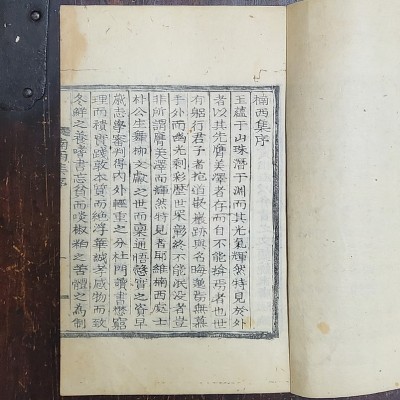 楠西集序
玉蘊于山珠潛于淵而其光氣輝然特見於外
者以其光膺美澤者存而自不能掩焉者也世
有躬行君子者抱道嵌巖跡與名晦蘧焉無慕
乎外而幽光剩彩歷世采彰終不能泯沒者豈
非所謂膺美澤而輝然特見者耶維楠西處士
朴公生舞柳文獻之世而稟通悟慤實之資早
歲志學審判得內外輕重之分杜門讀書慥窮
理而積實踐敦本質而絶浮華誠孝感物而致
冬鮮之養嗜書忘貧而啖椒粕之苦體之為制